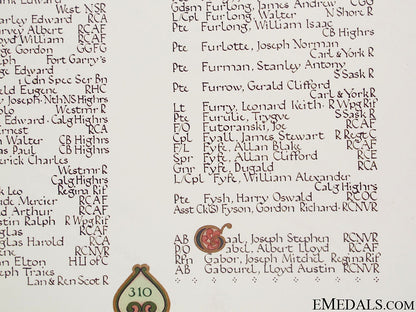 West NSR
Charley Edward RCA
Harvey Albert RCAF
Lloyd William RCAF
George Gordon GGFG
Joseph Fort Garry's
George Edward
1 Cdn Spec Ser Bn
Eugene RHC
Joseph. Nth NS Highrs
Westmr R
Edward. Calg Highrs
Ernest RCA
William CB Highrs
Paul CB Highrs
Frederick Charles
Westmr R
Calg Highrs
Leo Regina Rif
Claude Mercier RCAF
Arthur RCAF
Austin Ralph R Wpg Rif
Douglas RCAF
Douglas Harold RCA
RCNVR
Elton HLI of C
Joseph Traies
Lan & Ren Scot R
Gdsm Furlong, James Andrew CGG
L/Cpl Furlong, Walter N Shore R
Pte Furlong, William Isaac
CB Highrs
Pte Furlotte, Joseph Norman
Carl & York R
Pte Furman, Stanley Antony
S Sask R
Pte Furrow, Gerald Clifford
Carl & York R
Lt Furry, Leonard Keith. R Wpg Rif
Pte Furulie, Trygve S Sask R
F/O Futoranski, Joe RCAF
Cpl Fyall, James Stewart R Regt C
F/L Fyfe, Allan Blake RCAF
Spr Fyfe, Allan Clifford RCE
Gnr Fyfe, Dugald RCA
L/Cpl Fyfe, William Alexander
Calg Highrs
Pte Fysh, Harry Oswald RCOC
Asst Ck(S) Fyson, Gordon Richard. RCNVR
AB Gaal, Joseph Stephen RCNVR
P/O Gabel, Albert Lloyd RCAF
Rfn Gabor, Joseph Mitchel Regina Rif
AB Gabourel, Lloyd Austin RCNVR
310
EMEDALS.COM